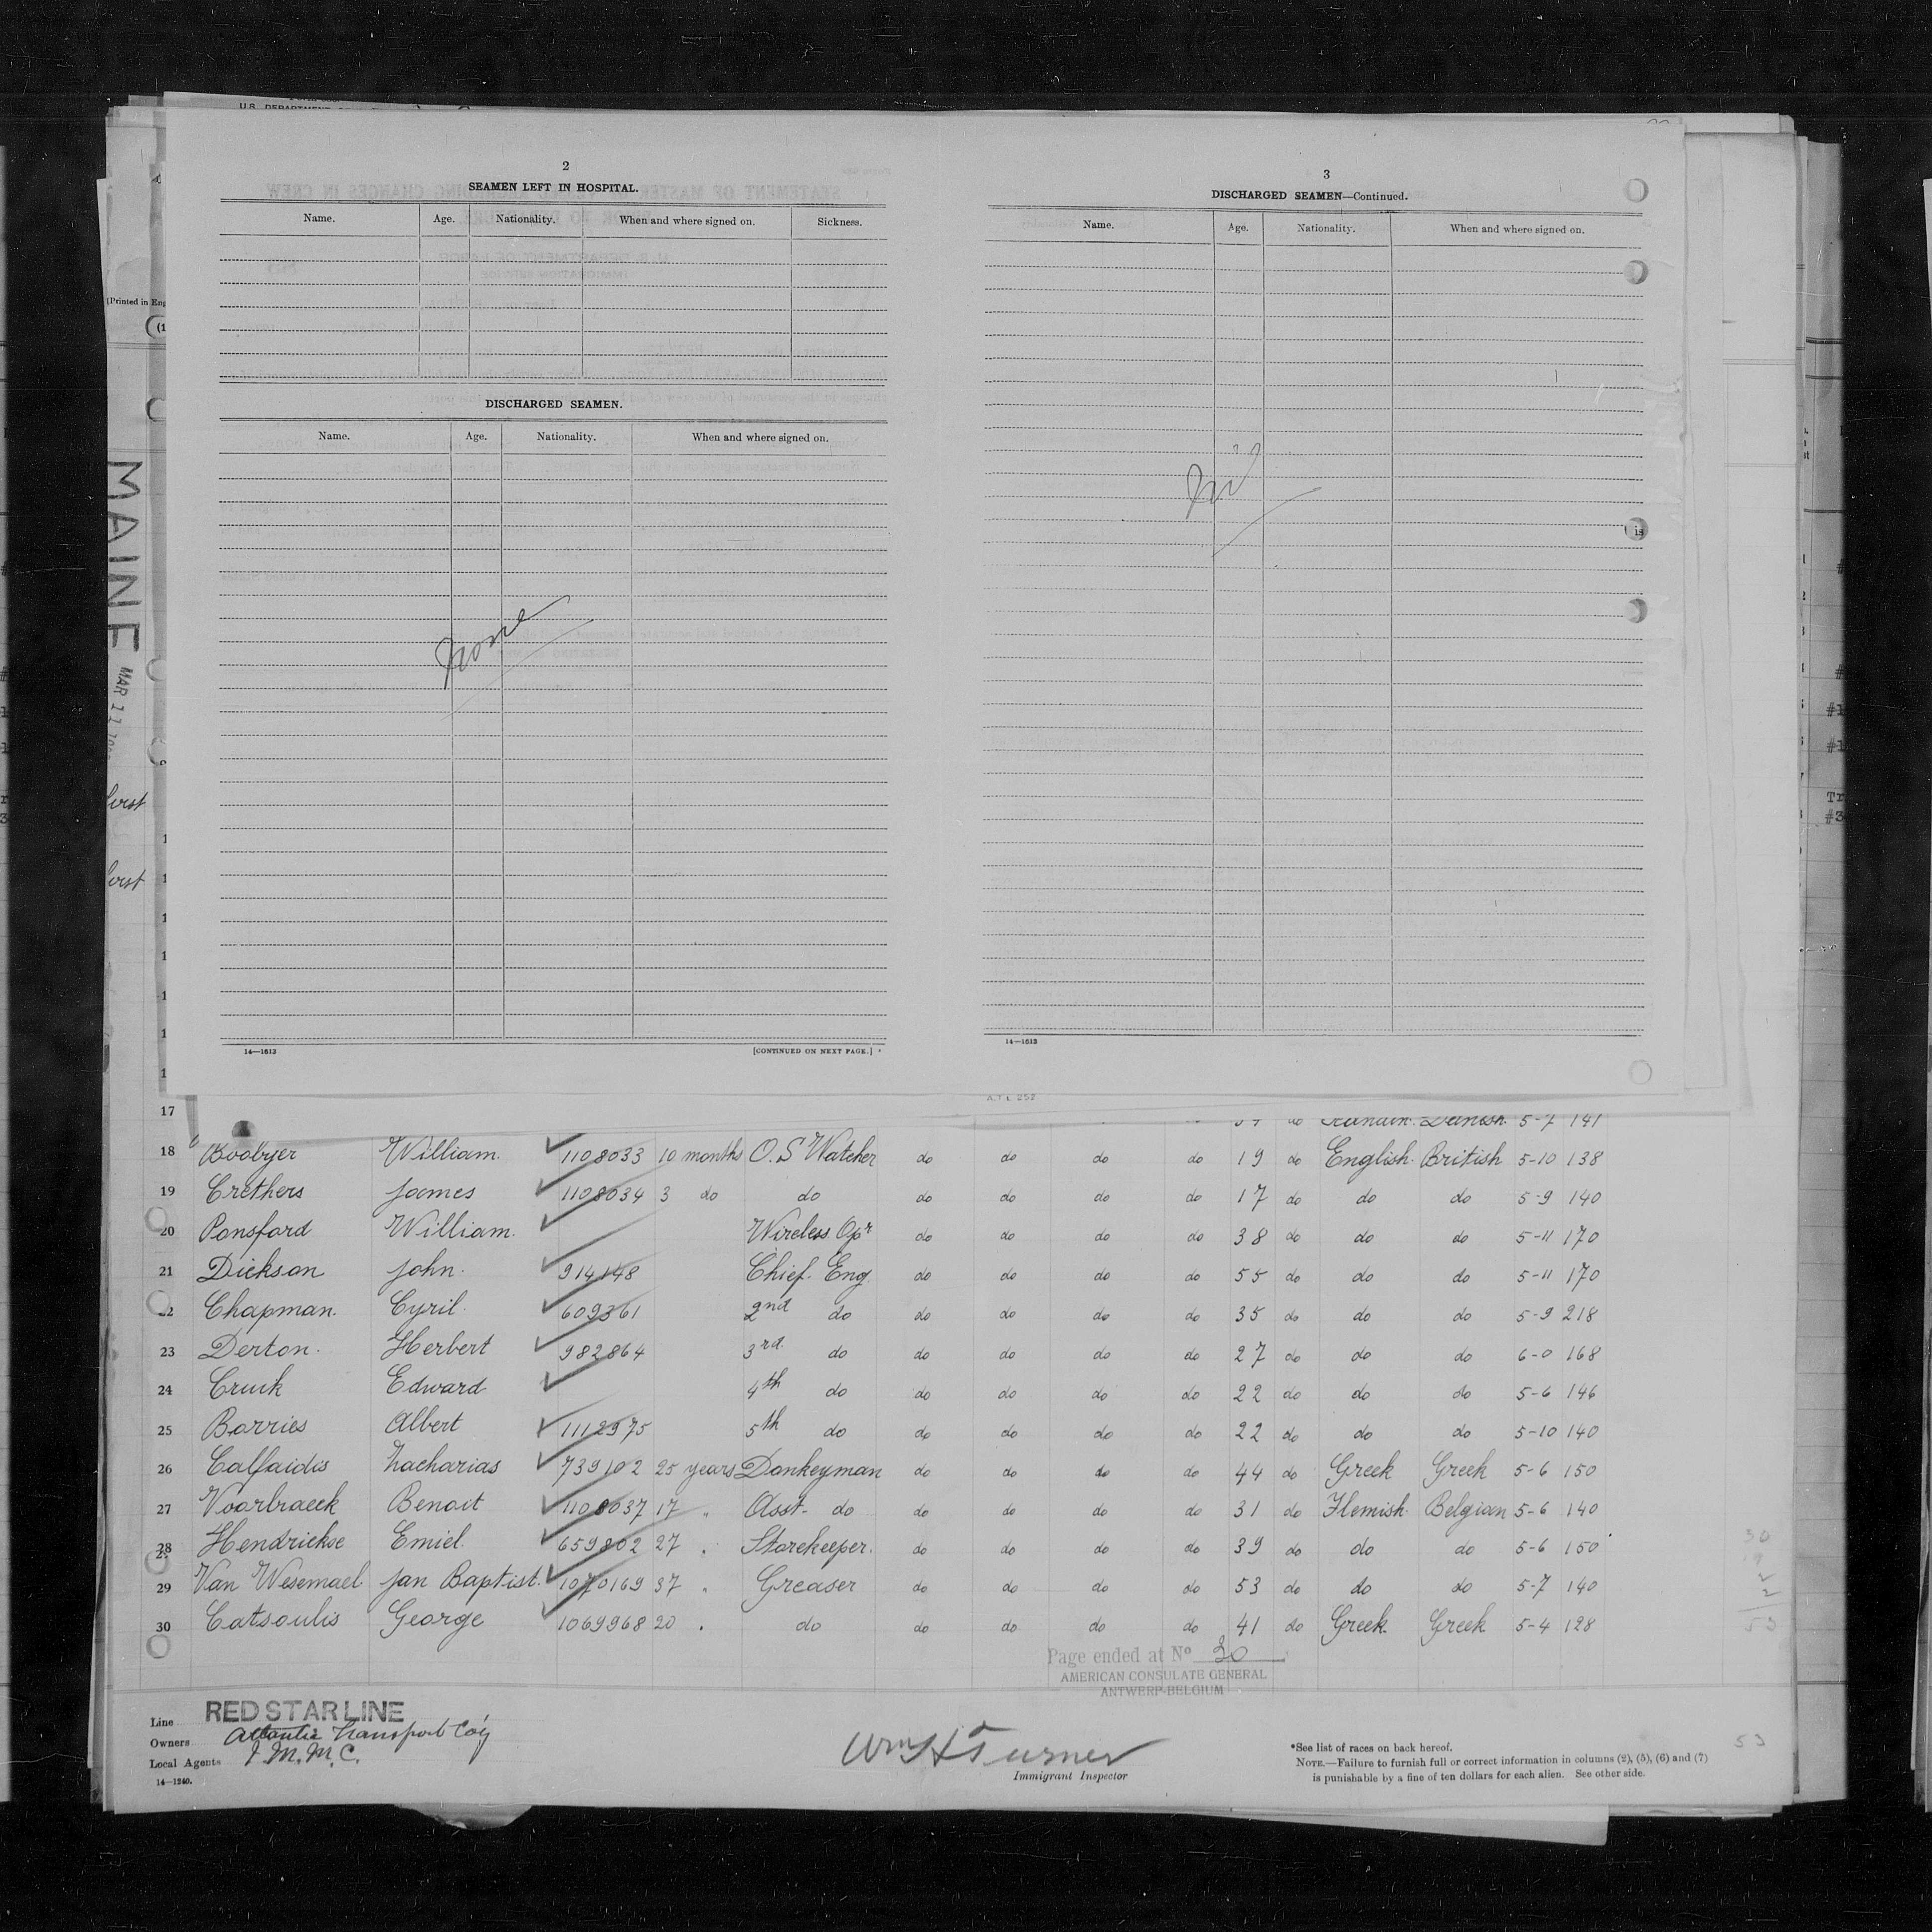 2
SEAMEN LEFT IN HOSPITAL.
Name. Age. Nationality. When and where signed on. Sickness.
DISCHARGED SEAMEN.
Name. Age. Nationality. When and where signed on.
None
14—1613 [CONTINUED ON NEXT PAGE.]
3
DISCHARGED SEAMEN—Continued.
Name. Age. Nationality. When and where signed on.
Nil
14—1613
[Printed in Eng
MAINE
MAR 11
A.T.L 252
17 Danish 5-7 141
18 Boobyer William. 1108033 10 months O.S Watcher do do do do 19 do English British 5-10 138
19 Crethers James 1108034 3 do do do do do do 17 do do do 5-9 140
20 Ponsford William. Wireless Opr do do do do 38 do do do 5-11 170
21 Dickson John. 914148 Chief Eng. do do do do 55 do do do 5-11 170
22 Chapman. Cyril. 609361 2nd do do do do do 35 do do do 5-9 218
23 Derton. Herbert 982864 3rd do do do do do 27 do do do 6-0 168
24 Cruik Edward 4th do do do do do 22 do do do 5-6 146
25 Borries Albert 1112975 5th do do do do do 22 do do do 5-10 140
26 Calfaidis Zacharias 739102 25 years Donkeyman do do do do 44 do Greek Greek 5-6 150
27 Voorbraeck Benoit 1108037 17 " Asst. do do do do do 31 do Flemish Belgian 5-6 140
28 Hendrickse Emiel. 659802 27 " Storekeeper. do do do do 39 do do do 5-6 150
29 Van Wesemael Jan Baptist. 1070169 37 " Greaser do do do do 53 do do do 5-7 140
30 Catsoulis George 1069968 20 " do do do do do 41 do Greek Greek 5-4 128
Page ended at No 30
AMERICAN CONSULATE GENERAL
ANTWERP-BELGIUM
Line RED STAR LINE
Owners Atlantic Transport Coy
Local Agents I.M.M.C.
14—1240.
Wm H Turner
Immigrant Inspector
*See list of races on back hereof.
NOTE.—Failure to furnish full or correct information in columns (2), (5), (6) and (7)
is punishable by a fine of ten dollars for each alien. See other side.
53